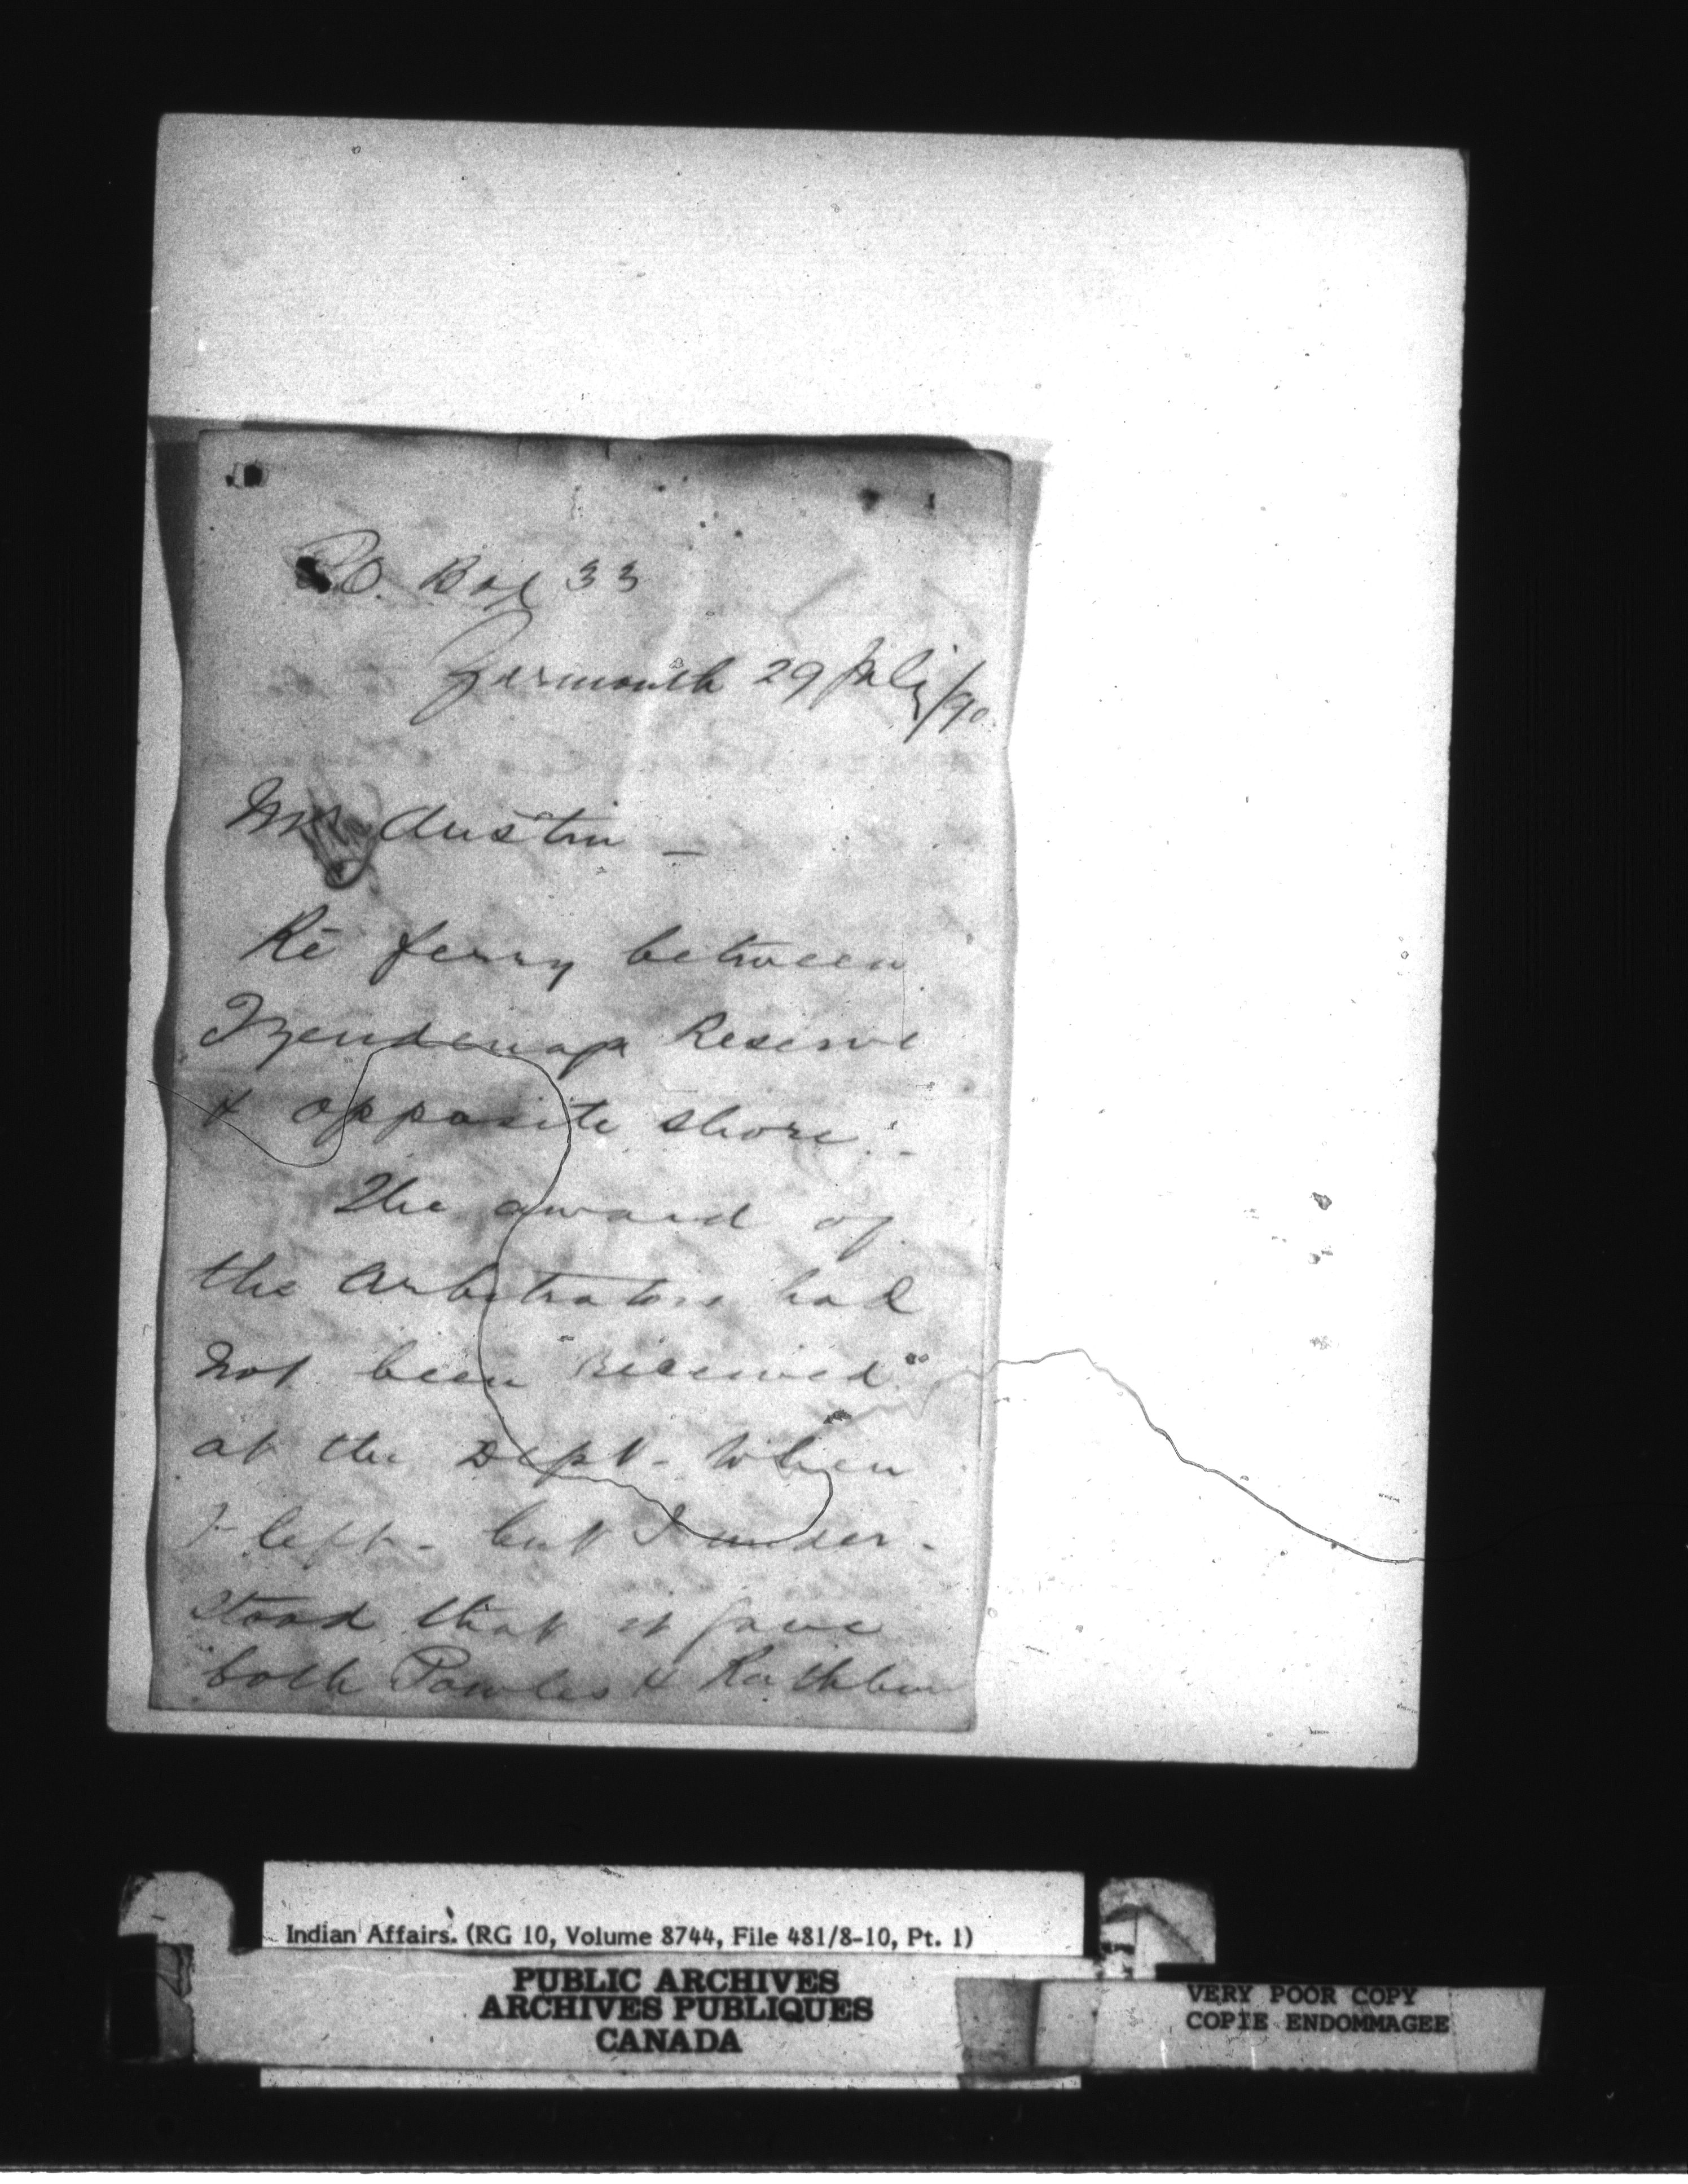 P.O. Box 33
Yarmouth 29 July/90.
Mr Austin —
Re ferry between
Tyendenaga Reserve
& opposite shore:-
The award of
the Arbitrators had
not been "received"
at the Dept. when
I left - but I under-
stood that it gave
both Powles & Rathbun
Indian Affairs. (RG 10, Volume 8744, File 481/8-10, Pt. 1)
PUBLIC ARCHIVES
ARCHIVES PUBLIQUES
CANADA
VERY POOR COPY
COPIE ENDOMMAGEE